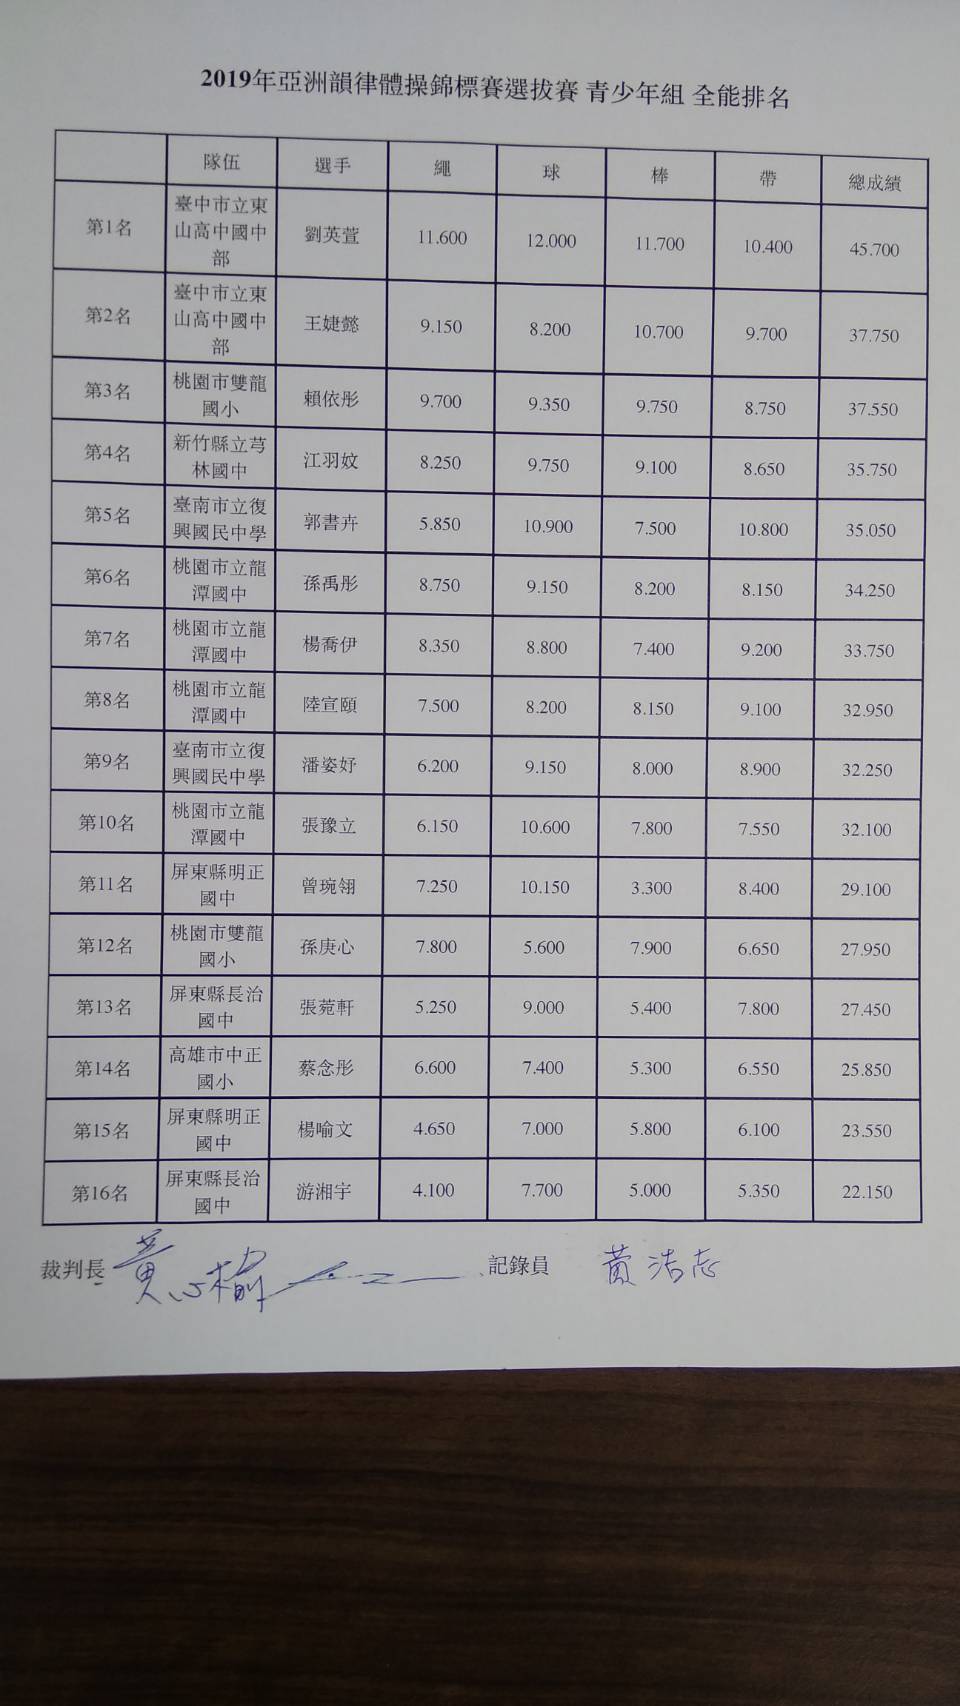 2019年亞洲韻律體操錦標賽選拔賽 青少年組 全能排名
隊伍 選手 繩 球 棒 帶 總成績
第1名 臺中市立東山高中國中部 劉英萱 11.600 12.000 11.700 10.400 45.700
第2名 臺中市立東山高中國中部 王婕懿 9.150 8.200 10.700 9.700 37.750
第3名 桃園市雙龍國小 賴依彤 9.700 9.350 9.750 8.750 37.550
第4名 新竹縣立芎林國中 江羽妏 8.250 9.750 9.100 8.650 35.750
第5名 臺南市立復興國民中學 郭書卉 5.850 10.900 7.500 10.800 35.050
第6名 桃園市立龍潭國中 孫禹彤 8.750 9.150 8.200 8.150 34.250
第7名 桃園市立龍潭國中 楊喬伊 8.350 8.800 7.400 9.200 33.750
第8名 桃園市立龍潭國中 陸宣頤 7.500 8.200 8.150 9.100 32.950
第9名 臺南市立復興國民中學 潘姿妤 6.200 9.150 8.000 8.900 32.250
第10名 桃園市立龍潭國中 張豫立 6.150 10.600 7.800 7.550 32.100
第11名 屏東縣明正國中 曾琬翎 7.250 10.150 3.300 8.400 29.100
第12名 桃園市雙龍國小 孫庚心 7.800 5.600 7.900 6.650 27.950
第13名 屏東縣長治國中 張菀軒 5.250 9.000 5.400 7.800 27.450
第14名 高雄市中正國小 蔡念彤 6.600 7.400 5.300 6.550 25.850
第15名 屏東縣明正國中 楊喻文 4.650 7.000 5.800 6.100 23.550
第16名 屏東縣長治國中 游湘宇 4.100 7.700 5.000 5.350 22.150
裁判長 記錄員 黃浩志